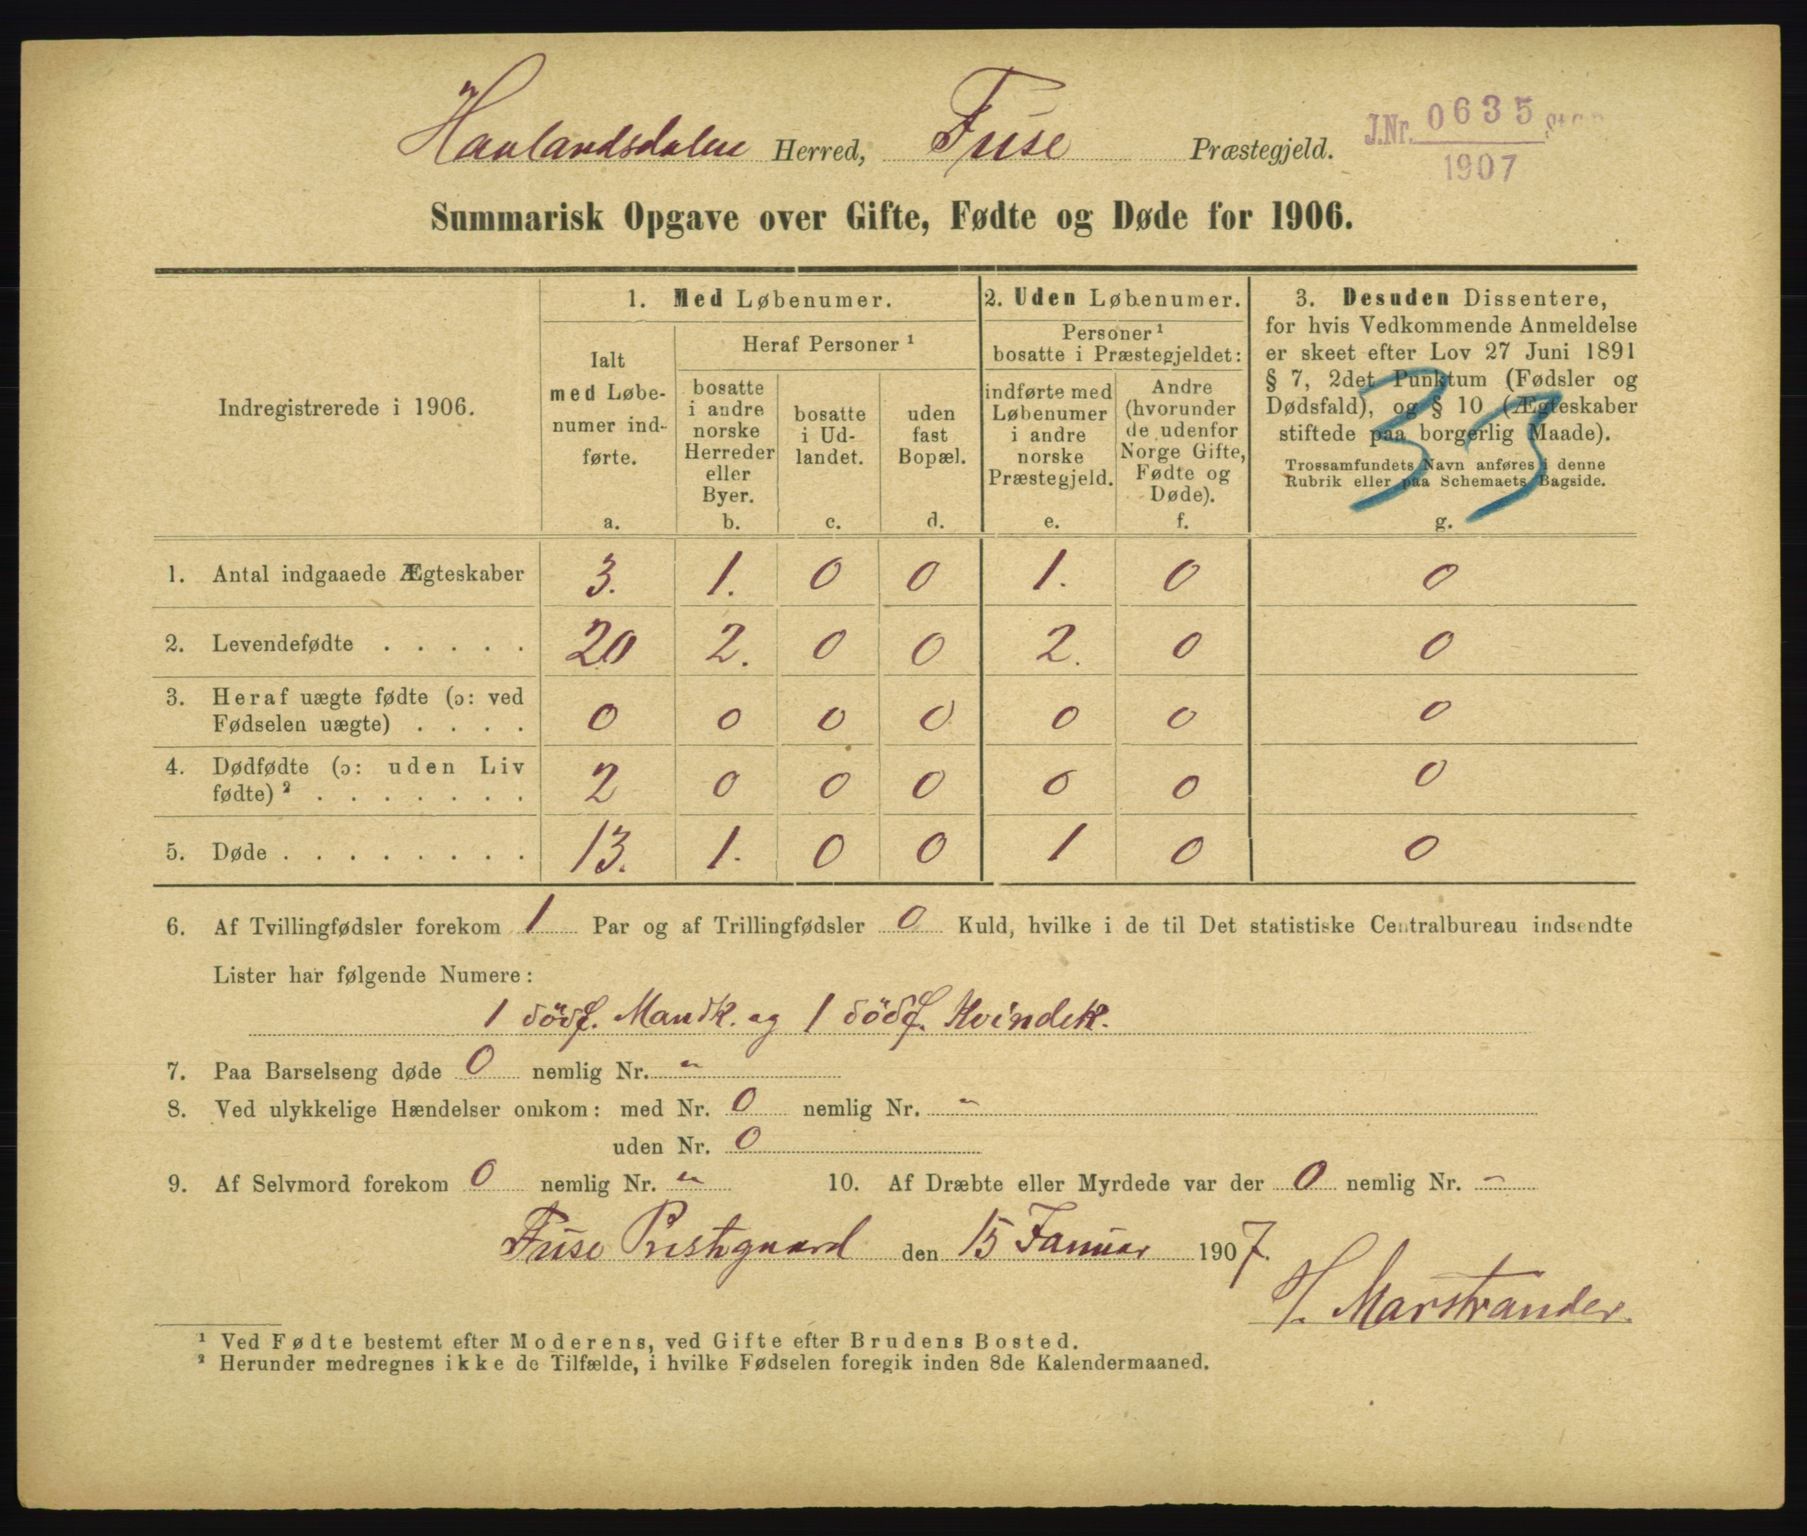 Haalandsdalen Herred, Fuse Præstegjeld.
J.Nr. 0635
1907
Summarisk Opgave over Gifte, Fødte og Døde for 1906.
Indregistrerede i 1906.
1. Med Løbenumer.
Ialt med Løbe-
numer ind-
førte.
a.
Heraf Personer ¹
bosatte
i andre
norske
Herreder
eller
Byer.
b.
bosatte
i Ud-
landet.
c.
uden
fast
Bopæl.
d.
2. Uden Løbenumer.
Personer ¹
bosatte i Præstegjeldet:
indførte med
Løbenumer
i andre
norske
Præstegjeld.
e.
Andre
(hvorunder
de udenfor
Norge Gifte,
Fødte og
Døde).
f.
3. Desuden Dissentere,
for hvis Vedkommende Anmeldelse
er skeet efter Lov 27 Juni 1891
§ 7, 2det Punktum (Fødsler og
Dødsfald), og § 10 (Ægteskaber
stiftede paa borgerlig Maade).
Trossamfundets Navn anføres i denne
Rubrik eller paa Schemaets Bagside.
g.
33
1. Antal indgaaede Ægteskaber 3. 1. 0 0 1. 0 0
2. Levendefødte . . . . . 20 2. 0 0 2. 0 0
3. Heraf uægte fødte (ɔ: ved
Fødselen uægte) . . . . 0 0 0 0 0 0 0
4. Dødfødte (ɔ: uden Liv
fødte) ² . . . . . . . 2 0 0 0 0 0 0
5. Døde . . . . . . . . 13. 1. 0 0 1 0 0
6. Af Tvillingfødsler forekom 1 Par og af Trillingfødsler 0 Kuld, hvilke i de til Det statistiske Centralbureau indsendte
Lister har følgende Numere:
1 dödf. Mandk. og 1 dödf. Kvindek.
7. Paa Barselseng døde 0 nemlig Nr. "
8. Ved ulykkelige Hændelser omkom: med Nr. 0 nemlig Nr. "
uden Nr. 0
9. Af Selvmord forekom 0 nemlig Nr. " 10. Af Dræbte eller Myrdede var der 0 nemlig Nr. "
Fuse Prestegaard den 15 Januar 1907.
H. Marstrander.
¹ Ved Fødte bestemt efter Moderens, ved Gifte efter Brudens Bosted.
² Herunder medregnes ikke de Tilfælde, i hvilke Fødselen foregik inden 8de Kalendermaaned.